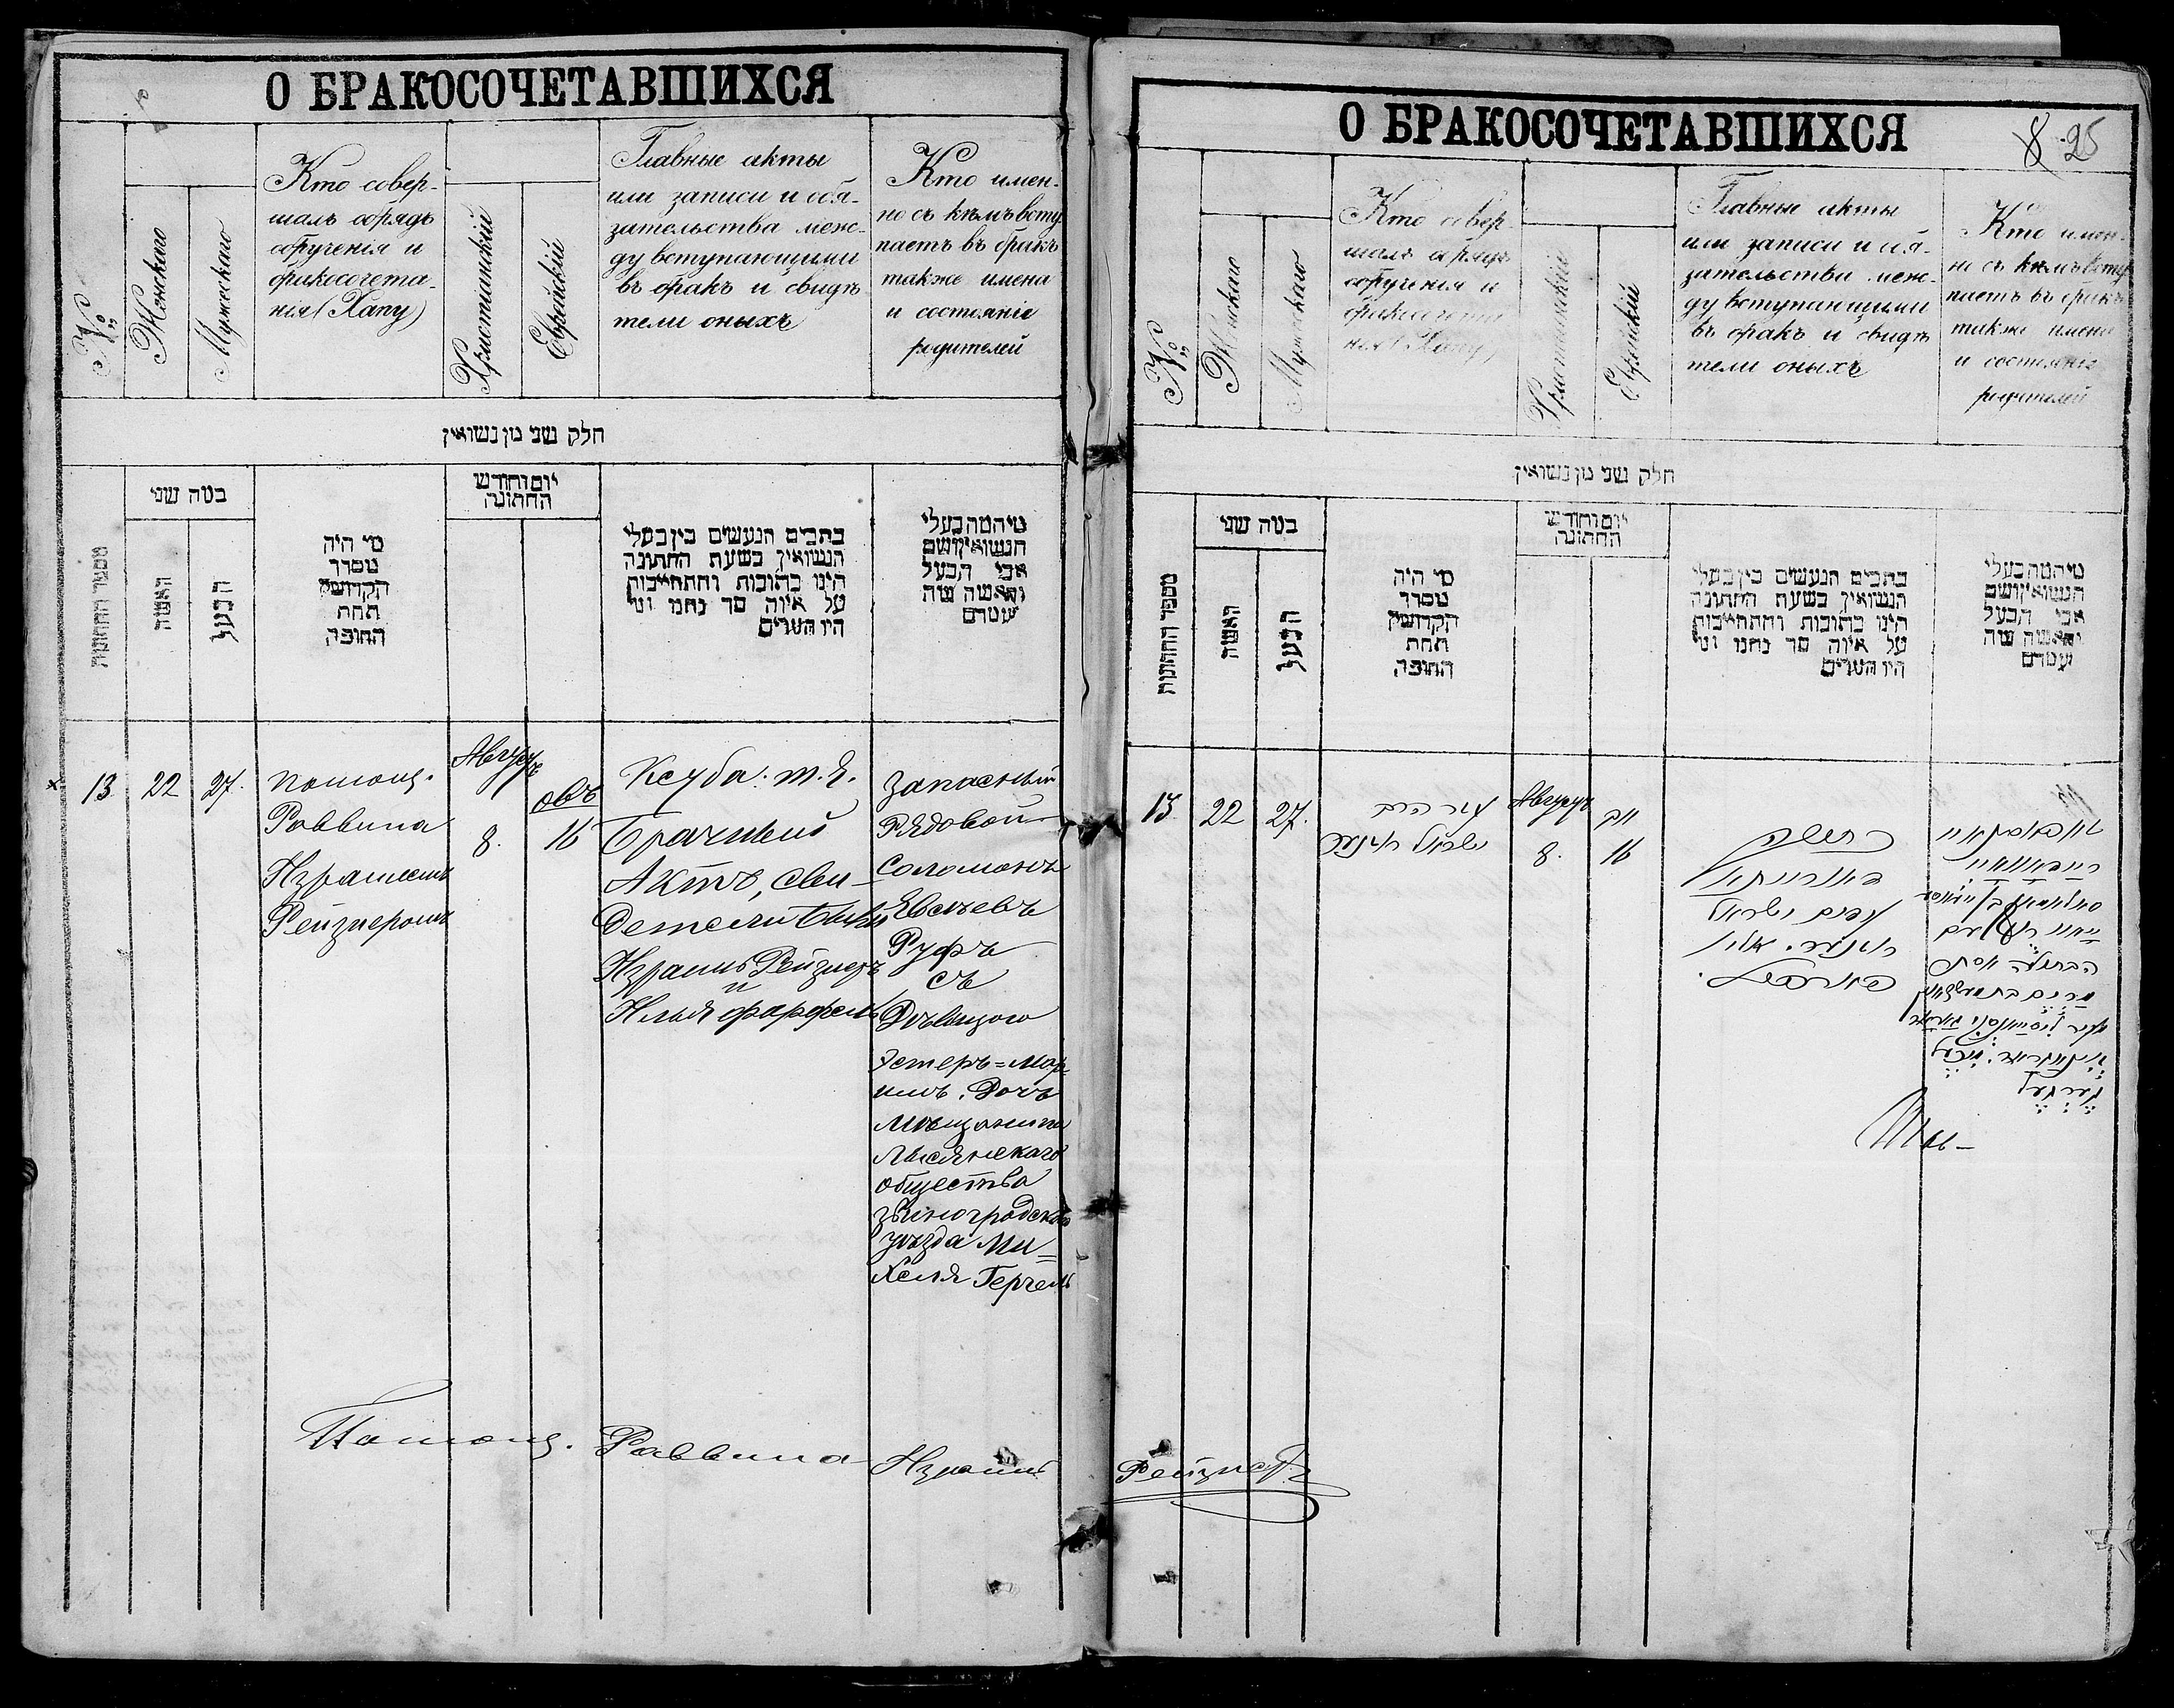 О БРАКОСОЧЕТАВШИХСЯ
№
Женскаго
Мужескаго
Кто совер-
шалъ обрядъ
обрученія и
бракосочета-
нія (Хапу)
Христіанскій
Еврейскій
Главные акты
или записи и обя-
зательства меж-
ду вступающими
въ бракъ и свидѣ
тели оныхъ
Кто имен-
но съ кѣмъ всту
паетъ въ бракъ
также имена
и состояніе
родителей
חלק שני מן נשואין
מספר החתונות
כמה שני
האשה
הבעל
מי היה
מסדר
הקדושין
תחת
החופה
יום וחודש
החתונה
כתבים הנעשים בין בעלי
הנשואין בשעת החתונה
היינו כתובות והתחייבות
על איזה סך נתנו ומי
היו העדים
מי המה בעלי
הנשואין ושם
אבי הבעל
והאשה
13
22
27.
Помощ.
Раввина
Израилемъ
Рейзнеромъ
Августъ
8.
овъ
16
Ксуба. т. е.
Брачный
Актъ, сви-
детели были
Израиль Рейзнеръ
и
Илья Фарфель
Запасный
Рядовой
Соломонъ
Евсѣевъ
Руфъ
съ
Дѣвицою
Эстеръ=Мар
имъ. Дочь
Мѣщанина
Лысянскаго
общества
Звѣногродскаго
уѣзда Ми-
хеля Герчель
Помощ. Раввина Израиль Рейзнеръ
О БРАКОСОЧЕТАВШИХСЯ
8 25
№
Женскаго
Мужескаго
Кто совер-
шалъ обрядъ
обрученія и
бракосочета-
нія (Хапу)
Христіанскій
Еврейскій
Главные акты
или записи и обя-
зательства меж-
ду вступающими
въ бракъ и свидѣ
тели оныхъ
Кто имен-
но съ кѣмъ всту
паетъ въ бракъ
также имена
и состояніе
родителей
חלק שני מן נשואין
מספר החתונות
כמה שני
האשה
הבעל
מי היה
מסדר
הקדושין
תחת
החופה
יום וחודש
החתונה
כתבים הנעשים בין בעלי
הנשואין בשעת החתונה
היינו כתובות והתחייבות
על איזה סך נתנו ומי
היו העדים
מי המה בעלי
הנשואין ושם
אבי הבעל
והאשה
13
22
27.
עזר הרב
ישראל רייזנער
Августъ
8.
אב
16
כתובה
דאורייתא
עדים ישראל
רייזנער. אלי
פארפעל.
עם
הבתולה אסתר
מרים בת